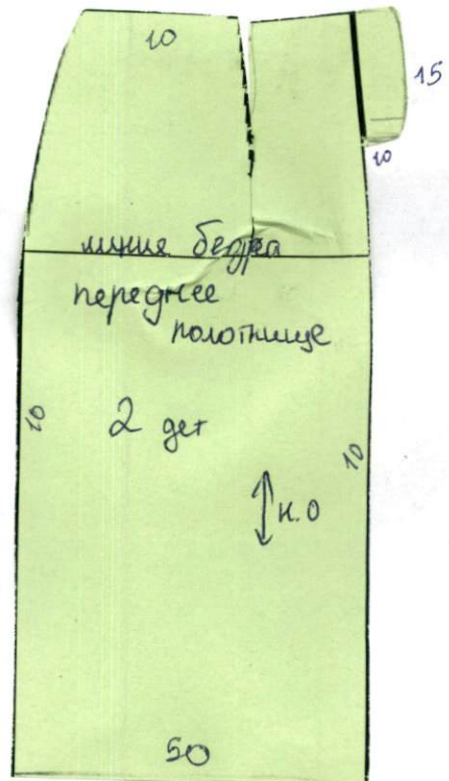 10
15
10
линия бедра
переднее
полотнище
10
2 дет
10
н.о
50